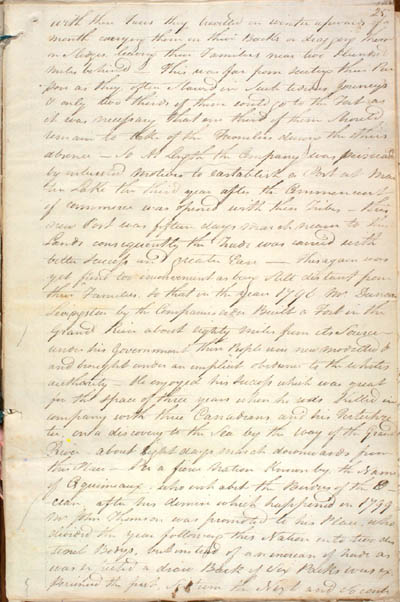 with their Furs they travelled in winter upwards of a
month carrying them on their Backs or dragging them
on Sledges leaving their Families near two hundred
Miles behind. This was far from suiting their Pur
pose as they often starved in such tedious Journeys
& only two thirds of them could go to the Fort as
it was necessary that one third of them should
remain to take of the Families during the others
absence - So At length the Company was
by interested motives to establish a Post at Mar
ten Lake the third year after the Commencement
of commerce was opened with these Tribes - this
new Post was fifteen days march nearer to their
Lands consequently the Trade was carried with
better Success and greater Ease - this again was
yet found too inconvenient as being still distant from
their Families. So that in the year 1796 Mr Duncan
Livingston by the Companies order Built a Fort in the
Grand River about eighty miles from its Source -
under his Government this People were new modelled
and brought under an implicit obedience to the whites
authority - He enjoyed his Success which was great
for the space of three years when he was killed in
company with three Canadians and his Interpre
ter on a discovery to the Sea by the way of the Grand
River about eight days march downwards from
this Place - By a few Nation Known by the Name
of Esquimaux who inhabit the Borders of the O
cean. after his demise which happened in 1799
Mr John Thomson was promoted to his Place, who
divided the year following this Nation into two dis
tinct Bodys, but instead of an increase of Trade as
was expected a draw Back of Six Packs was ex
perienced the first Return the Next and Second